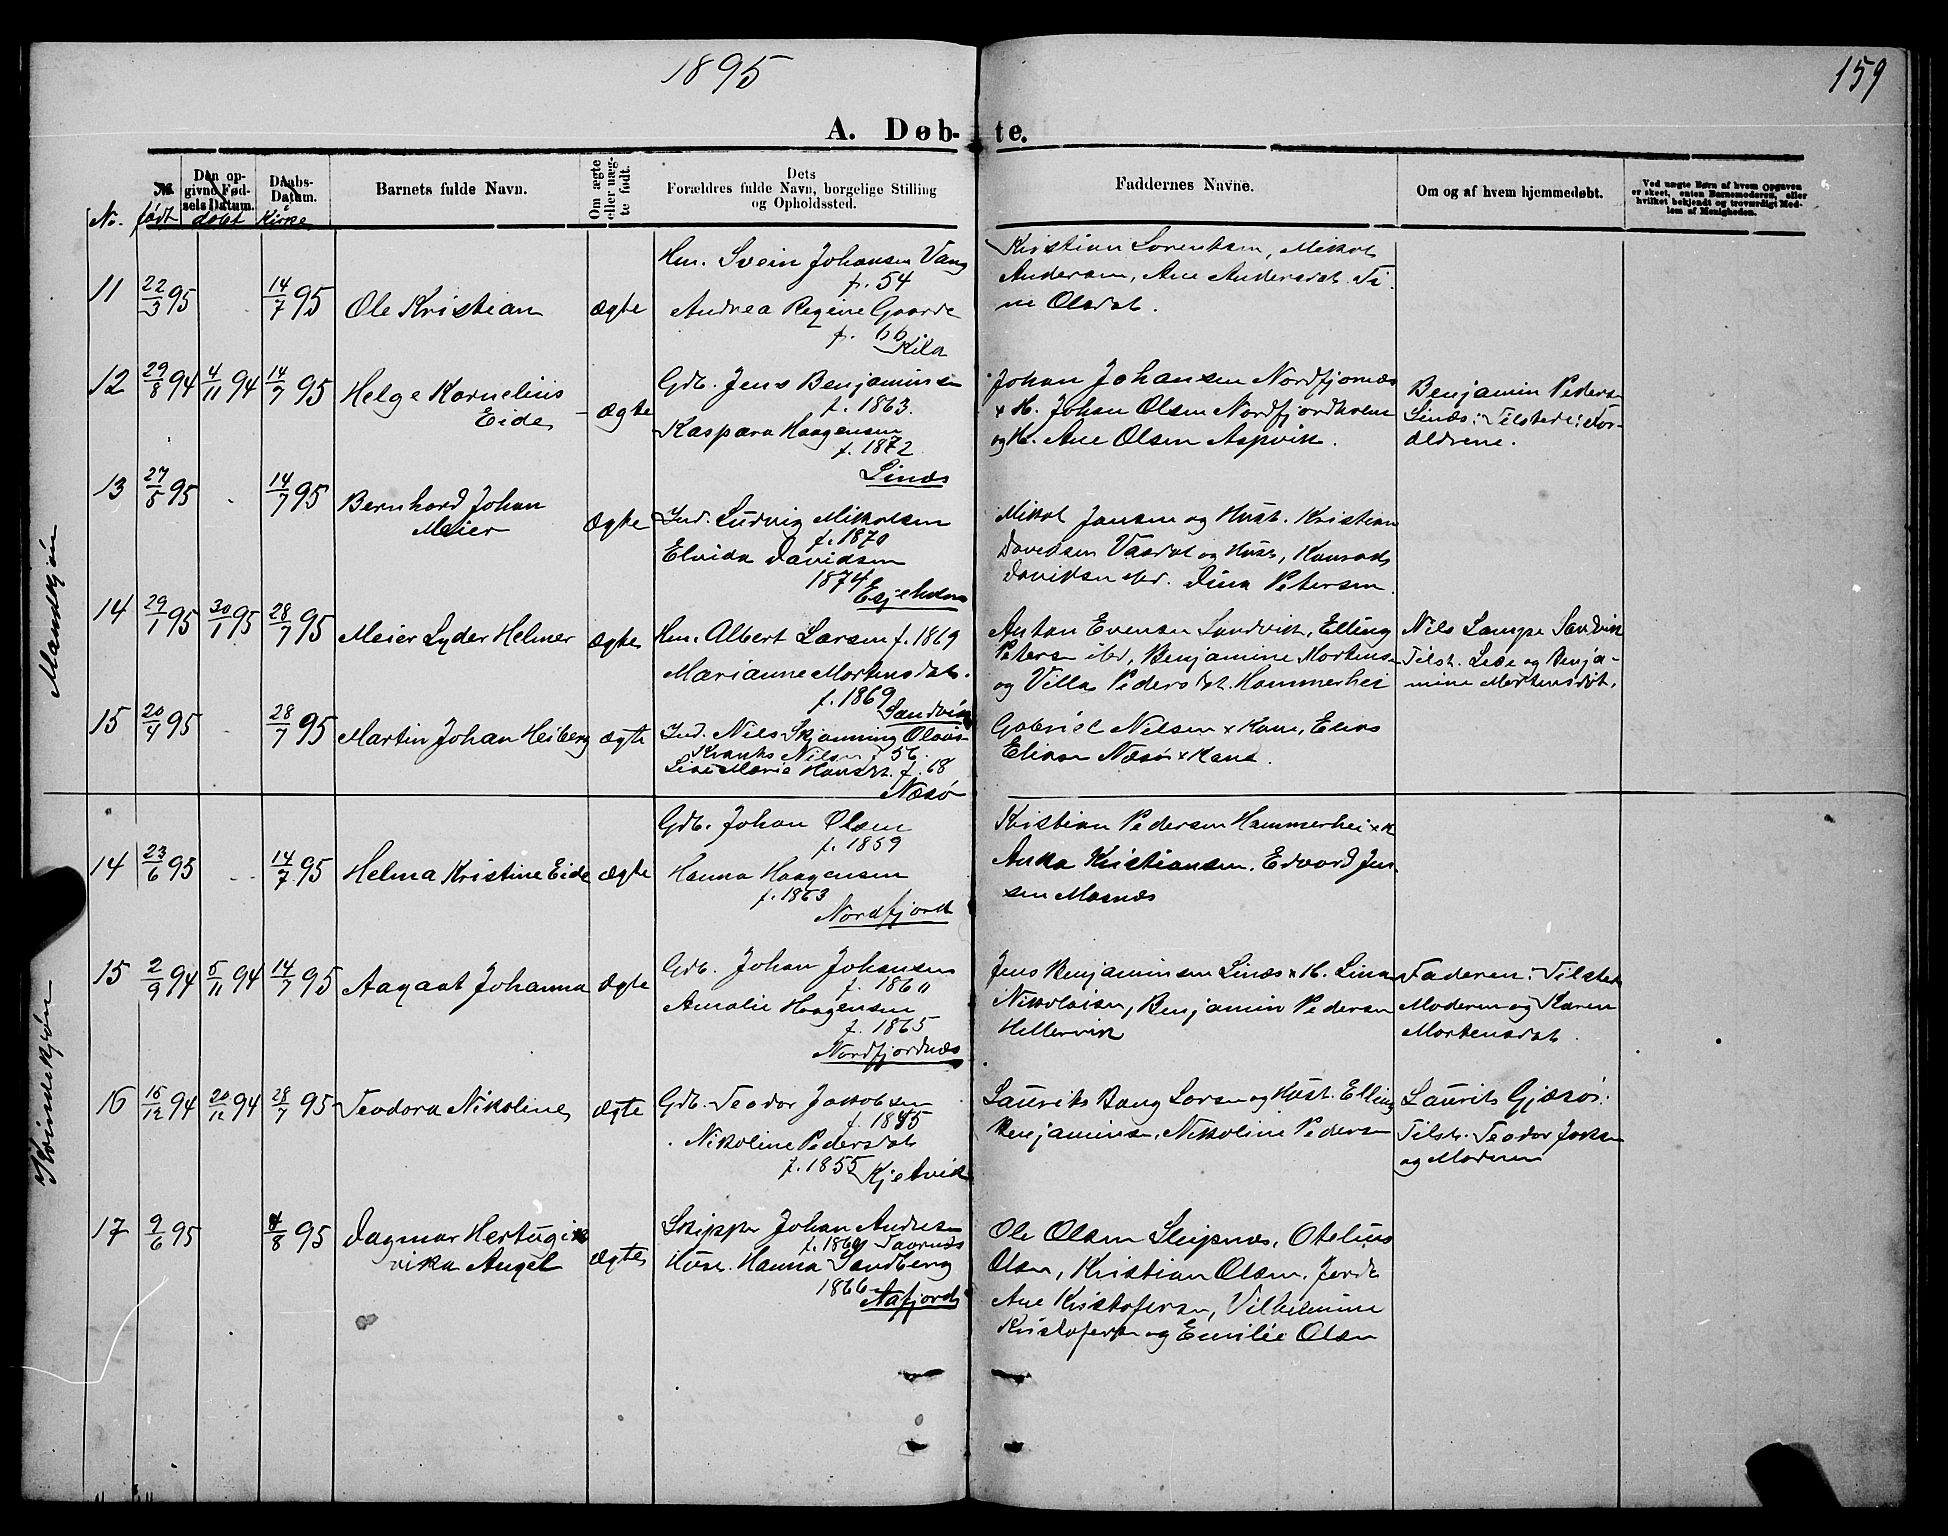 1895
159
A. Døb- te.
No. født døbt i Kirke
№
Den op-
givne Fød-
sels Datum.
Daabs-
Datum.
Barnets fulde Navn.
Om ægte
eller uæg-
te født.
Dets
Forældres fulde Navn, borgelige Stilling
og Opholdssted.
Faddernes Navne.
Om og af hvem hjemmedøbt.
Ved uægte Børn af hvem Opgaven
er skeet, enten Barnemoderen, eller
hvilket bekjendt og troværdigt Med-
lem af Menigheden.
Mandkjøn
11 22/3 95 14/7 95 Ole Kristian ægte
Hm. Svein Johansen Vang
f. 54
Andrea Regine Gaarde
f. 66
Kila
Kristian Lorentsen, Mikal
Andersen, Ane Andersdat. Ti-
ne Olsdat.
12 29/8 94 4/11 94 14/7 95 Helge Kornelius
Eide ægte
Gdb. Jens Benjaminsen
f. 1863.
Kaspara Haagensen
f. 1872
Linæs
Johan Johansen Nordfjornæs
x H. Johan Olsen Nordfjordholm
og H. Ane Olsen Aspvik.
Benjamin Peders
Linæs: Tilstede: For-
ældrene.
13 27/5 95 14/7 95 Bernhard Johan
Meier ægte
Ind. Ludvig Mikalsen
f. 1870
Elvida Davidsen
1874
Mikal Jansen og Hust. Kristian
Davidsen Vasdal og Hust, Konrad
Davidsen ibd. Dina Petersen.
14 29/1 95 30/1 95 28/7 95 Meier Lyder Helmer ægte
Hm. Albert Larsen f. 1869
Marianne Mortensdat.
f. 1869
Sandvik
Anton Evensen Sandvik, Elling
Petersen ibd, Benjamine Mortens-
og Villa Pedersdat. Hammerhei
Nils Lampe Sandvik
Tilst. Lise og Benja-
mine Mortensdat.
15 20/4 95 28/7 95 Martin Johan Heiberg ægte
Ind. Nils Skjønning Olaus
Krants Nilsen f 56.
Line Marie Hansdt. f. 68
Næsø
Gabriel Nilsen x Kone, Elias
Eliasen Næsø x Kone.
Kvindekjøn
14 23/6 95 14/7 95 Helma Kristine Eide ægte
Gdb. Johan Olsen
f. 1859
Hanna Haagensen
f. 1863
Nordfjord
Kristian Pedersen Hammerhei x K
Anka Kristiansen. Edvard Jen-
sen Masnæs
15 2/9 94 5/11 94 14/7 95 Aagaat Johanna ægte
Gdb. Johan Johansen
f. 1860
Amalie Haagensen
f. 1865
Nordfjordnæs
Jens Benjaminsen Linæs x H. Lina
Nikolaisen, Benjamin Pedersen
Hellervik
Faderen: Tilstede
Moderen og Karen
Mortensdat.
16 15/12 94 20/12 94 28/7 95 Teodora Nikoline ægte
Gdb. Teodor Jakobsen
f. 1855
Nikoline Pedersdat.
f. 1855 Kjelvik
Laurits Bang Larsen og Hust. Elling
Benjaminsen. Nikoline Pedersen
Laurits Gjæsø:
Tilst. Teodor Jakse
og Moderen
17 9/6 95 4/8 95 Dagmar Hertugin
vika Angel ægte
Skipper Johan Andresen
f. 1864 Taarnæs
Hust. Hanna Sandberg
1866 Aafjord
Ole Olsen Skipnæs, Otelius
Olsen, Kristian Olsen, Jerde
Ane Kristofersen, Vilhelmine
Kristofersen og Emilie Olsen